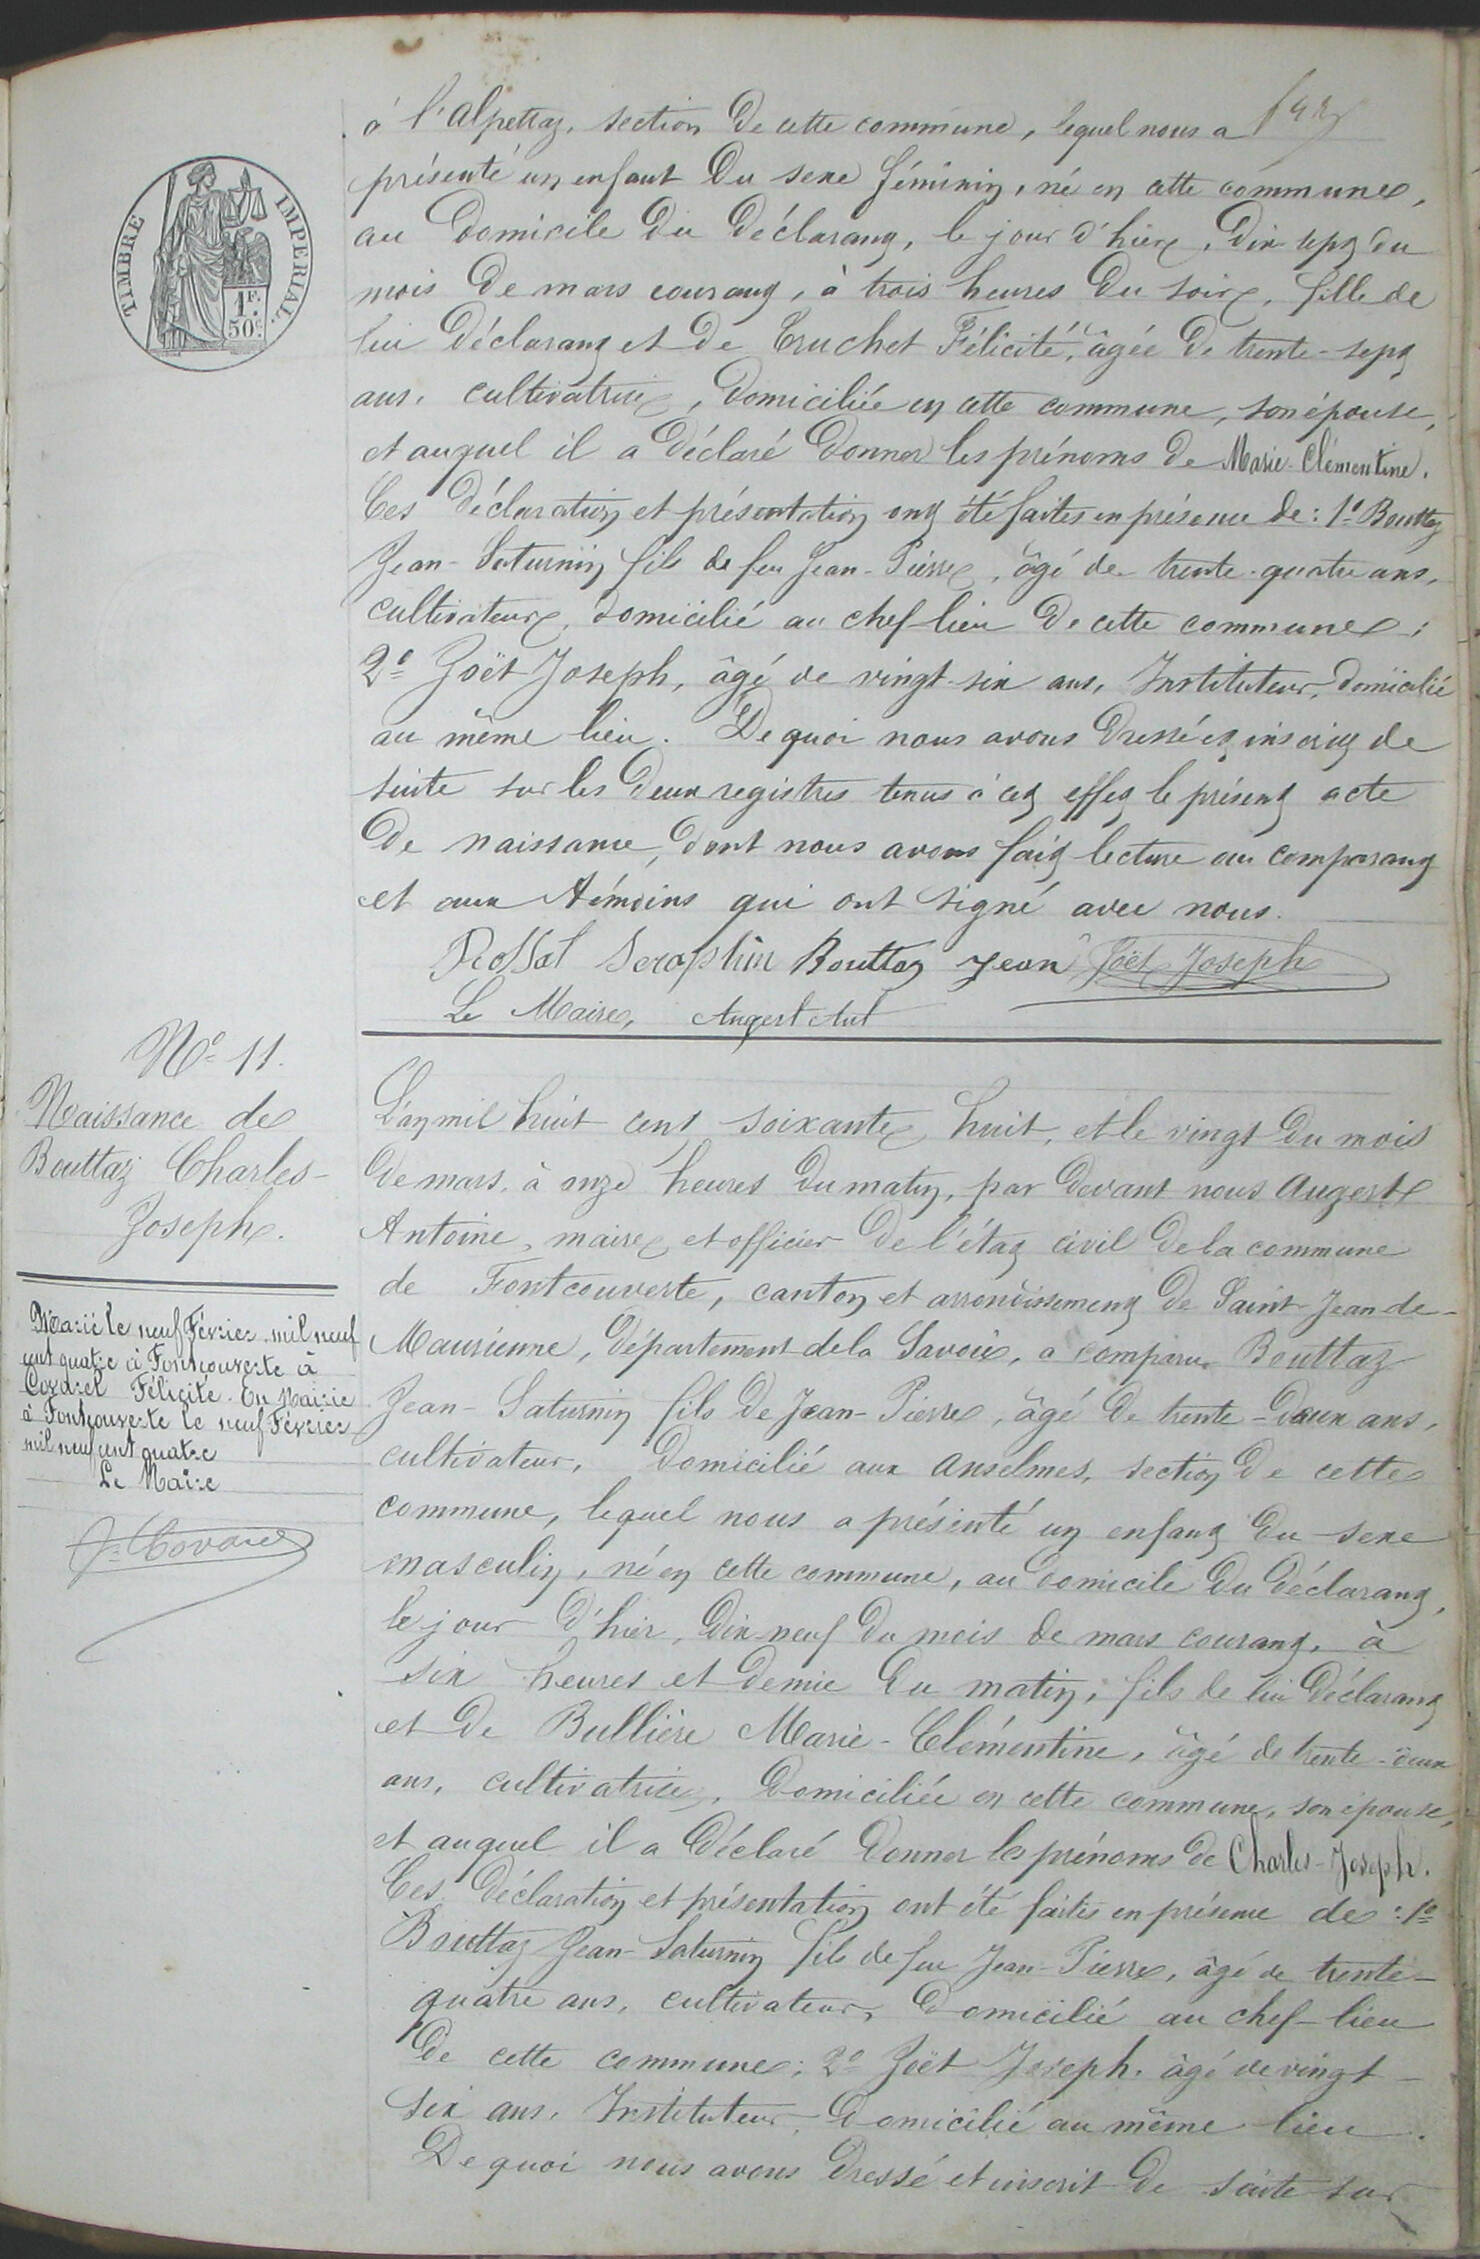 à l'Alpettaz, section de cette commune, lequel nous a
présenté un enfant du sexe féminin, né en cette commune,
au domicile du déclarant, le jour d'hier, dix-sept du
mois de mars courant, à trois heures du soir, fille de
lui déclarant et de Truchet Félicité, âgée de trente-sept
ans, cultivatrice, domiciliée en cette commune, son épouse,
et auquel il a déclaré donner les prénoms de Marie-Clémentine.
Ces déclaration et présentation ont été faites en présence de: 1º Bouttaz
Jean-Saturnin fils de feu Jean-Pierre, âgé de trente-quatre ans,
cultivateur, domicilié au chef-lieu de cette commune;
2º Joët Joseph, âgé de vingt-six ans, Instituteur, domicilié
au même lieu. De quoi nous avons dressé et inscrit de
suite sur les deux registres tenus à cet effet le présent acte
de naissance, dont nous avons fait lecture au comparant
et aux témoins qui ont signé avec nous.
Rossat Seraphin Bouttaz Jean Joët Joseph
Le Maire, Augert Ant
TIMBRE IMPERIAL.
1F.
50c
Nº 11.
Naissance de
Bouttaz Charles-
Joseph.
Marié le neuf Février mil neuf
cent quatre à Fontcouverte à
Covarel Félicité. En Mairie
à Fontcouverte le neuf Février
mil neuf cent quatre
Le Maire
Covarel
L'an mil huit cent soixante huit, et le vingt du mois
de mars, à onze heures du matin, par devant nous Augert
Antoine, maire et officier de l'état civil de la commune
de Fontcouverte, canton et arrondissement de Saint-Jean-de-
Maurienne, département de la Savoie, a comparu Bouttaz
Jean-Saturnin fils de Jean-Pierre, âgé de trente-deux ans,
cultivateur, domicilié aux Anselmes, section de cette
commune, lequel nous a présenté un enfant du sexe
masculin, né en cette commune, au domicile du déclarant,
le jour d'hier, dix-neuf du mois de mars courant, à
six heures et demie du matin, fils de lui déclarant
et de Bullière Marie-Clémentine, âgé de trente-deux
ans, cultivatrice, domiciliée en cette commune, son épouse,
et auquel il a déclaré donner les prénoms de Charles-Joseph.
Ces déclaration et présentation ont été faites en présence de: 1º
Bouttaz Jean-Saturnin fils de feu Jean-Pierre, âgé de trente-
quatre ans, cultivateur, domicilié au chef-lieu
de cette commune; 2º Joët Joseph, âgé de vingt-
six ans, Instituteur, domicilié au même lieu.
De quoi nous avons dressé et inscrit de suite sur